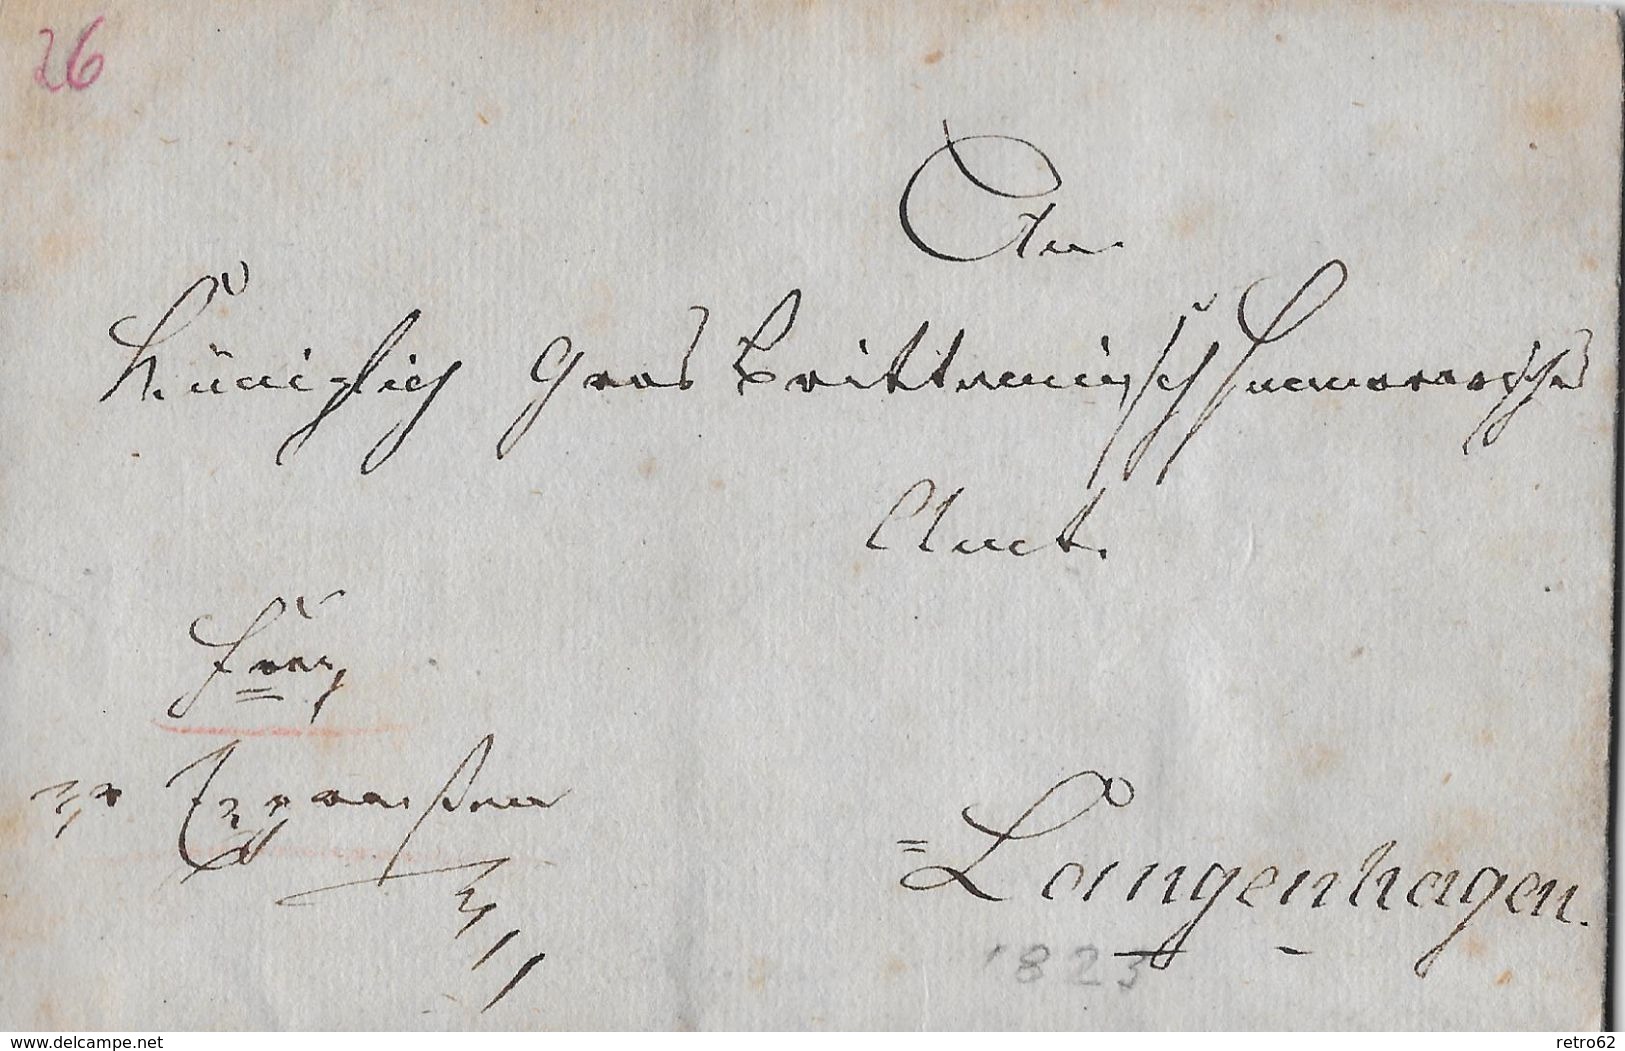 26
An
Königlich Gros Brittannisch Hannoversches
Amt.
frey
Langenhagen.
1823
www.delcampe.net
retro62